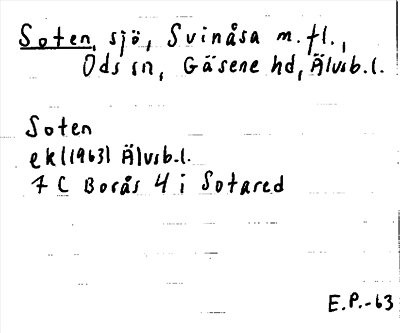 Soten, sjö, Svinåsa m.fl.,
Ods sn, Gäsene hd, Älvsb.l.
Soten
ek (1963) Älvsb.l.
7 C Borås 4 i Sotared
E.P.-63